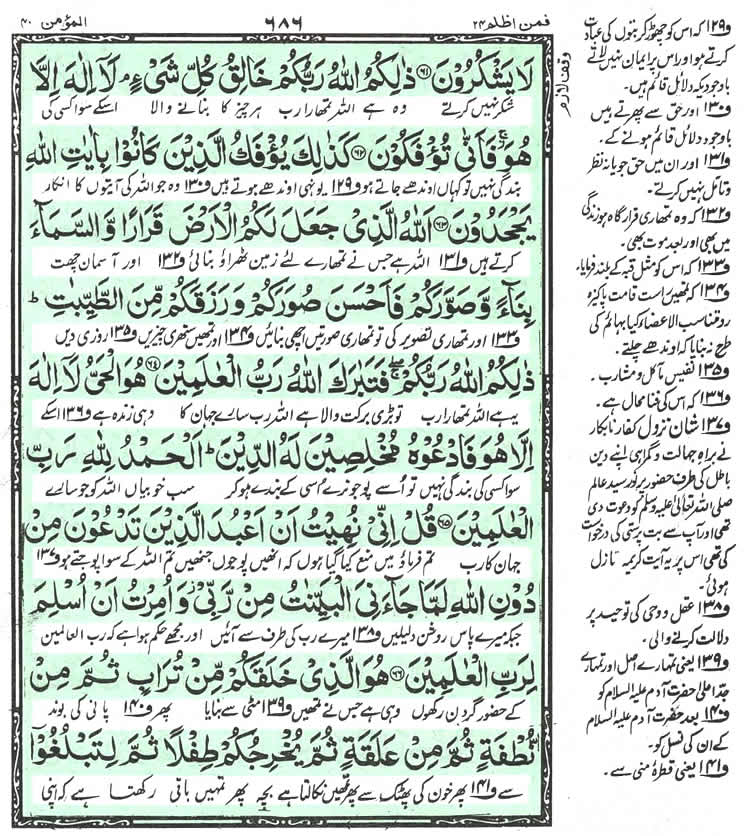 المؤمن ۴۰
۶۸۶
فمن اظلم ۲۴
لَا يَشْكُرُوْنَ ﴿۶۱﴾ ذٰلِكُمُ اللّٰهُ رَبُّكُمْ خَالِقُ كُلِّ شَيْءٍ ۘ لَاۤ اِلٰهَ اِلَّا
شکر نہیں کرتے وہ ہے اللہ تمھارا رب ہر چیز کا بنانے والا اسکے سوا کسی کی
هُوَ ۫ۖ فَاَنّٰى تُؤْفَكُوْنَ ﴿۶۲﴾ كَذٰلِكَ يُؤْفَكُ الَّذِيْنَ كَانُوْا بِاٰيٰتِ اللّٰهِ
بندگی نہیں تو کہاں اوندھے جاتے ہو و۱۲۹ یونہی اوندھے ہوتے ہیں و۱۳۰ وہ جو اللہ کی آیتوں کا انکار
يَجْحَدُوْنَ ﴿۶۳﴾ اَللّٰهُ الَّذِيْ جَعَلَ لَكُمُ الْاَرْضَ قَرَارًا وَّ السَّمَآءَ
کرتے ہیں و۱۳۱ اللہ ہے جس نے تمھارے لئے زمین ٹھراؤ بنائی و۱۳۲ اور آسمان چھت
بِنَآءً وَّ صَوَّرَكُمْ فَاَحْسَنَ صُوَرَكُمْ وَ رَزَقَكُمْ مِّنَ الطَّيِّبٰتِ ؕ
و۱۳۳ اور تمھاری تصویر کی تو تمھاری صورتیں اچھی بنائیں و۱۳۴ اور تمھیں ستھری چیزیں و۱۳۵ روزی دیں
ذٰلِكُمُ اللّٰهُ رَبُّكُمْ ۖۚ فَتَبٰرَكَ اللّٰهُ رَبُّ الْعٰلَمِيْنَ ﴿۶۴﴾ هُوَ الْحَيُّ لَاۤ اِلٰهَ
یہ ہے اللہ تمھارا رب تو بڑی برکت والا ہے اللہ رب سارے جہان کا وہی زندہ ہے و۱۳۶ اسکے
اِلَّا هُوَ فَادْعُوْهُ مُخْلِصِيْنَ لَهُ الدِّيْنَ ؕ اَلْحَمْدُ لِلّٰهِ رَبِّ
سوا کسی کی بندگی نہیں تو اُسے پوجو نرے اُسی کے بندے ہو کر سب خوبیاں اللہ کو جو سارے
الْعٰلَمِيْنَ ﴿۶۵﴾ قُلْ اِنِّيْ نُهِيْتُ اَنْ اَعْبُدَ الَّذِيْنَ تَدْعُوْنَ مِنْ
جہان کا رب تم فرماؤ میں منع کیا گیا ہوں کہ انھیں پوجوں جنھیں تم اللہ کے سوا پوجتے ہو و۱۳۷
دُوْنِ اللّٰهِ لَمَّا جَآءَنِيَ الْبَيِّنٰتُ مِنْ رَّبِّيْ ؗ وَ اُمِرْتُ اَنْ اُسْلِمَ
جبکہ میرے پاس روشن دلیلیں و۱۳۸ میرے رب کی طرف سے آئیں اور مجھے حکم ہوا ہے کہ رب العالمین
لِرَبِّ الْعٰلَمِيْنَ ﴿۶۶﴾ هُوَ الَّذِيْ خَلَقَكُمْ مِّنْ تُرَابٍ ثُمَّ مِنْ
کے حضور گردن رکھوں وہی ہے جس نے تمھیں و۱۳۹ مٹی سے بنایا پھر و۱۴۰ پانی کی بوند
نُّطْفَةٍ ثُمَّ مِنْ عَلَقَةٍ ثُمَّ يُخْرِجُكُمْ طِفْلًا ثُمَّ لِتَبْلُغُوْۤا
سے و۱۴۱ پھر خون کی پھٹک سے پھر تمھیں نکالتا ہے بچہ پھر تمہیں باقی رکھتا ہے کہ اپنی
و۱۲۹ کہ اس کو چھوڑ کر بتوں کی عبادت
کرتے ہو اور اس پر ایمان نہیں لاتے
باوجودیکہ دلائل قائم ہیں۔
و۱۳۰ اور حق سے پھرتے ہیں
باوجود دلائل قائم ہونے کے۔
و۱۳۱ اور ان میں حق جویانہ نظر
و تامل نہیں کرتے۔
و۱۳۲ کہ وہ تمھاری قرارگاہ ہو زندگی
میں بھی اور بعد موت بھی۔
و۱۳۳ کہ اس کو مثل قبہ کے بلند فرمایا،
و۱۳۴ کہ تمھیں راست قامت پاکیزہ
رو متناسب الاعضا کیا بہائم کی
طرح نہ بنایا کہ اوندھے چلتے۔
و۱۳۵ نفیس مآکل و مشارب۔
و۱۳۶ کہ اس کی فنا محال ہے۔
و۱۳۷ شان نزول کفار نابکار
نے براہ جہالت و گمراہی اپنے دین
باطل کی طرف حضور پر نور سید عالم
صلی اللہ تعالیٰ علیہ وسلم کو دعوت دی
تھی اور آپ سے بت پرستی کی درخواست
کی تھی اس پر یہ آیت کریمہ نازل
ہوئی۔
و۱۳۸ عقل و وحی کی توحید پر
دلالت کرنے والی۔
و۱۳۹ یعنی تمہارے اصل اور تمہارے
جد اعلیٰ حضرت آدم علیہ السلام کو
و۱۴۰ بعد حضرت آدم علیہ السلام
کے ان کی نسل کو۔
و۱۴۱ یعنی قطرۂ منی سے۔
وقف لازم